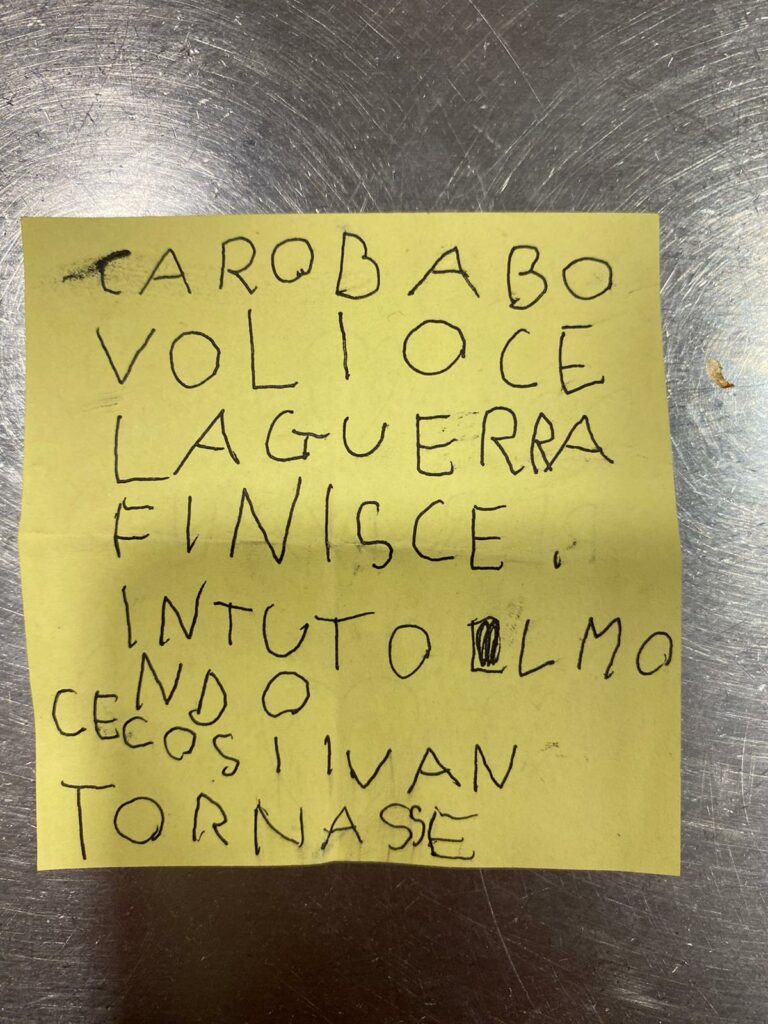 CARO BABO
VOLIO CE
LA GUERRA
FINISCE.
IN TUTO LMO
NDO
CECOSI IVAN
TORNASSE